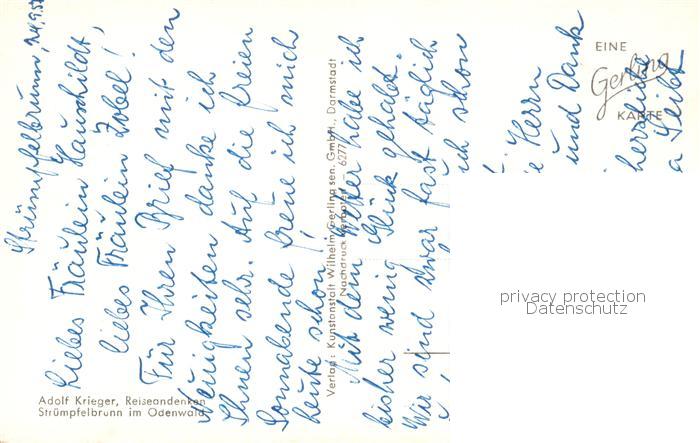 Strümpfelbrunn, 24.9.58
Liebes Fräulein Hauschildt,
liebes Fräulein Zobel!
Für Ihren Brief mit den
Neuigkeiten danke ich
Ihnen sehr. Auf die freien
Sonnabende freue ich mich
heute schon!
Mit dem Wetter habe ich
bisher wenig Glück gehabt.
Wir sind zwar fast täglich
ich schon
Herrn
und Dank
herzliche
a Seibt
EINE
Gerling
KARTE
Verlag: Kunstanstalt Wilhelm Gerling sen. GmbH., Darmstadt
Nachdruck verboten - 6277
Adolf Krieger, Reiseandenken
Strümpfelbrunn im Odenwald
privacy protection
Datenschutz